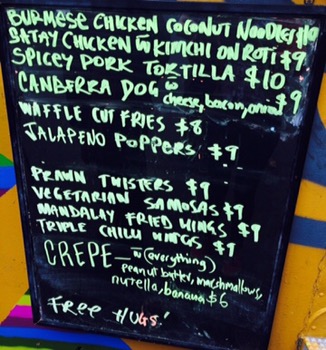 BURMESE CHICKEN COCONUT NOODLES $10
SATAY CHICKEN W KIMCHI ON ROTI $9
SPICEY PORK TORTILLA $10
CANBERRA DOG W
cheese, bacon, onion $9
WAFFLE CUT FRIES $8
JALAPENO POPPERS $9
PRAWN TWISTERS $9
VEGETARIAN SAMOSAS $9
MANDALAY FRIED WINGS $9
TRIPLE CHILLI WINGS $9
CREPE – W (everything)
peanut butter, marshmallows,
nutella, banana $6
FREE HUGS!